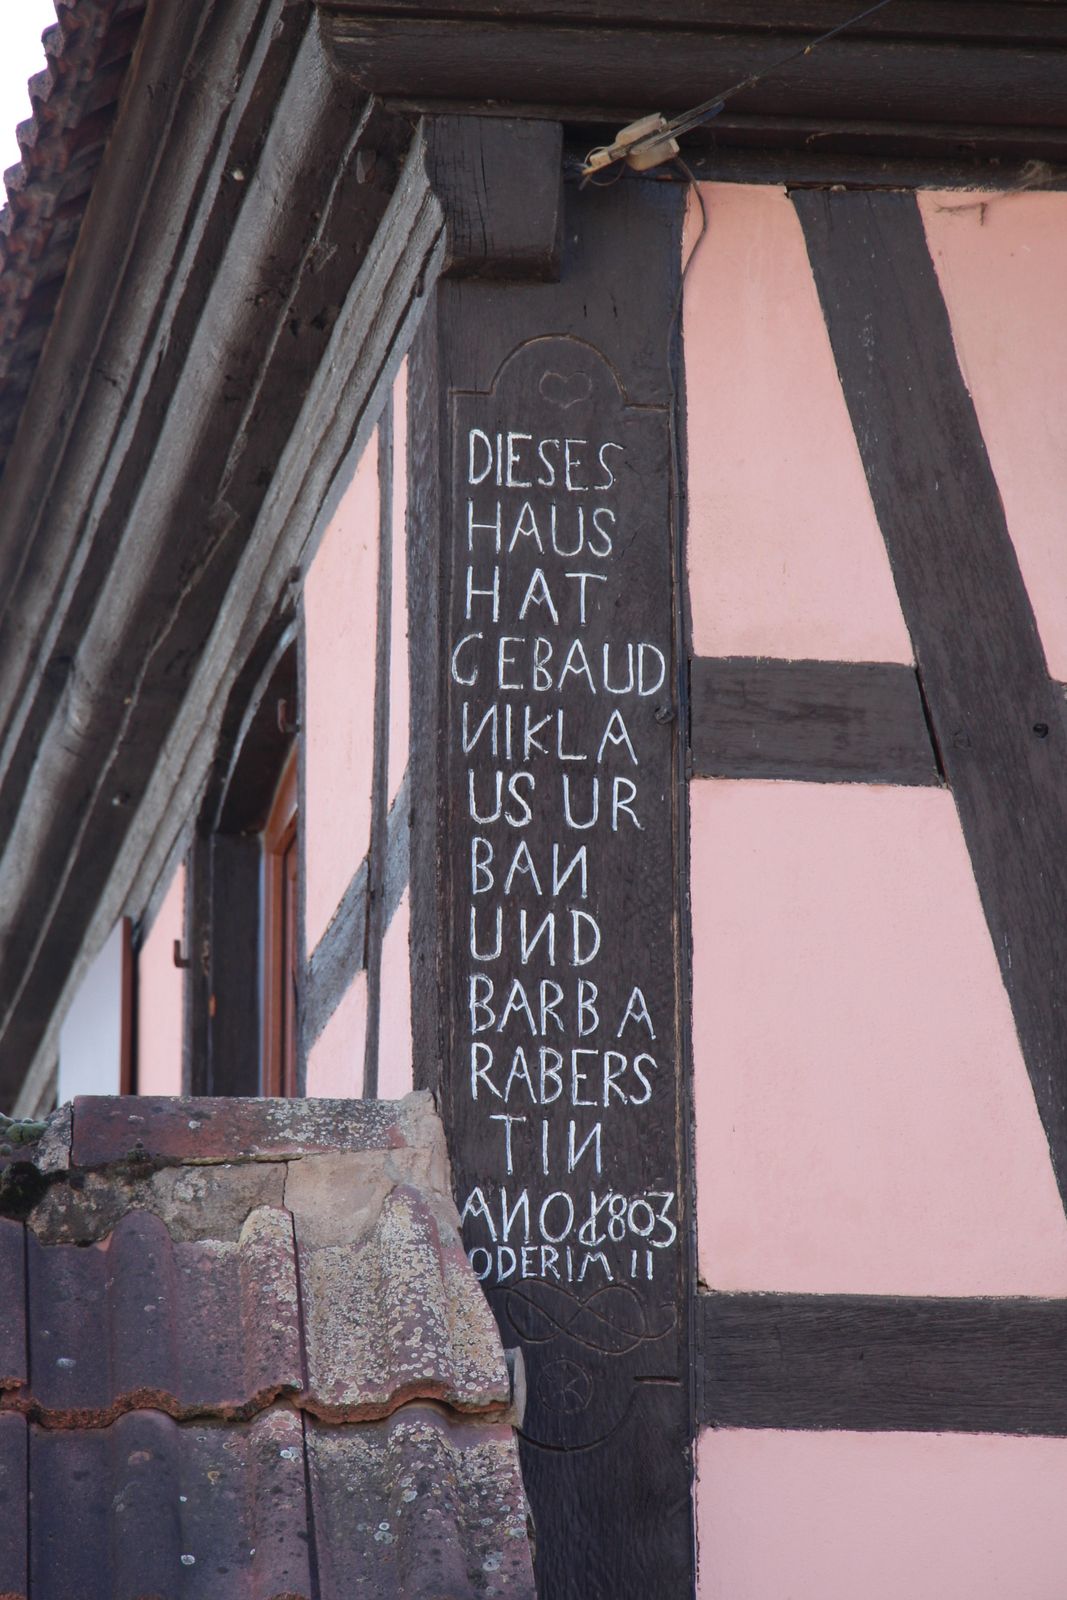 DIESES
HAUS
HAT
GEBAUD
NIKLA
US UR
BAN
UND
BARBA
RABERS
TIN
ANO 1803
ODERIM II